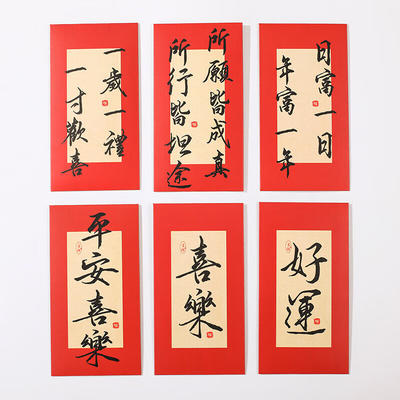 一歲一禮
一寸歡喜
所願皆成真
所行皆坦途
日富一日
年富一年
平安喜樂
喜樂
好運